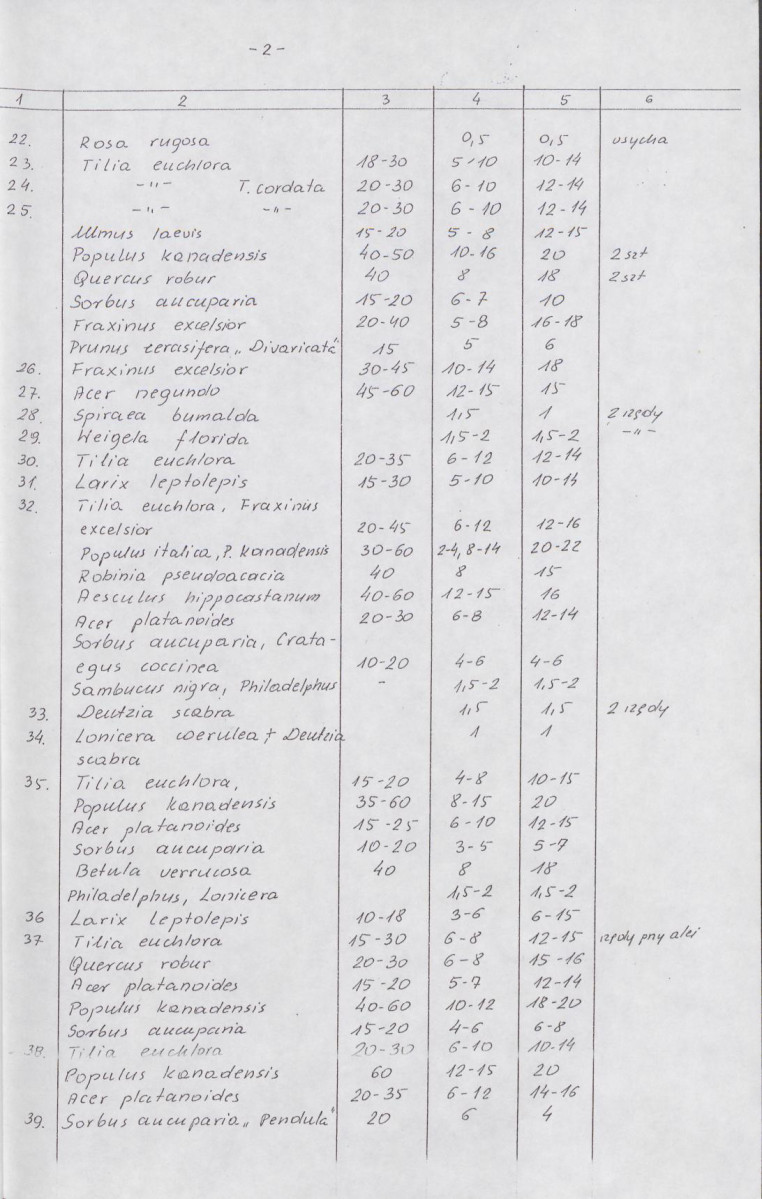 - 2 -
1 2 3 4 5 6
22. Rosa rugosa 0,5 0,5 usycha
23. Tilia euchlora 18-30 5-10 10-14
24. -"- T. cordata 20-30 6-10 12-14
25. -"- -"- 20-30 6-10 12-14
Ulmus laevis 15-20 5-8 12-15
Populus kanadensis 40-50 10-16 20 2 szt
Quercus robur 40 8 18 2 szt
Sorbus aucuparia 15-20 6-7 10
Fraxinus excelsior 20-40 5-8 16-18
Prunus cerasifera „Divaricata" 15 5 6
26. Fraxinus excelsior 30-45 10-14 18
27. Acer negundo 45-60 12-15 15
28. Spiraea bumalda 1,5 1 2 rzędy
29. Weigela florida 1,5-2 1,5-2 -"-
30. Tilia euchlora 20-35 6-12 12-14
31. Larix leptolepis 15-30 5-10 10-14
32. Tilia euchlora, Fraxinus
excelsior 20-45 6-12 12-16
Populus italica, P. kanadensis 30-60 2-4, 8-14 20-22
Robinia pseudoacacia 40 8 15
Aesculus hippocastanum 40-60 12-15 16
Acer platanoides 20-30 6-8 12-14
Sorbus aucuparia, Crata-
egus coccinea 10-20 4-6 4-6
Sambucus nigra, Philadelphus - 1,5-2 1,5-2
33. Deutzia scabra 1,5 1,5 2 rzędy
34. Lonicera coerulea + Deutzia 1 1
scabra
35. Tilia euchlora, 15-20 4-8 10-15
Populus kanadensis 35-60 8-15 20
Acer platanoides 15-25 6-10 12-15
Sorbus aucuparia 10-20 3-5 5-7
Betula verrucosa 40 8 18
Philadelphus, Lonicera 1,5-2 1,5-2
36 Larix leptolepis 10-18 3-6 6-15
37 Tilia euchlora 15-30 6-8 12-15 rzędy przy alei
Quercus robur 20-30 6-8 15-16
Acer platanoides 15-20 5-7 12-14
Populus kanadensis 40-60 10-12 18-20
Sorbus aucuparia 15-20 4-6 6-8
38. Tilia euchlora 20-30 6-10 10-14
Populus kanadensis 60 12-15 20
Acer platanoides 20-35 6-12 14-16
39. Sorbus aucuparia „Pendula" 20 6 4